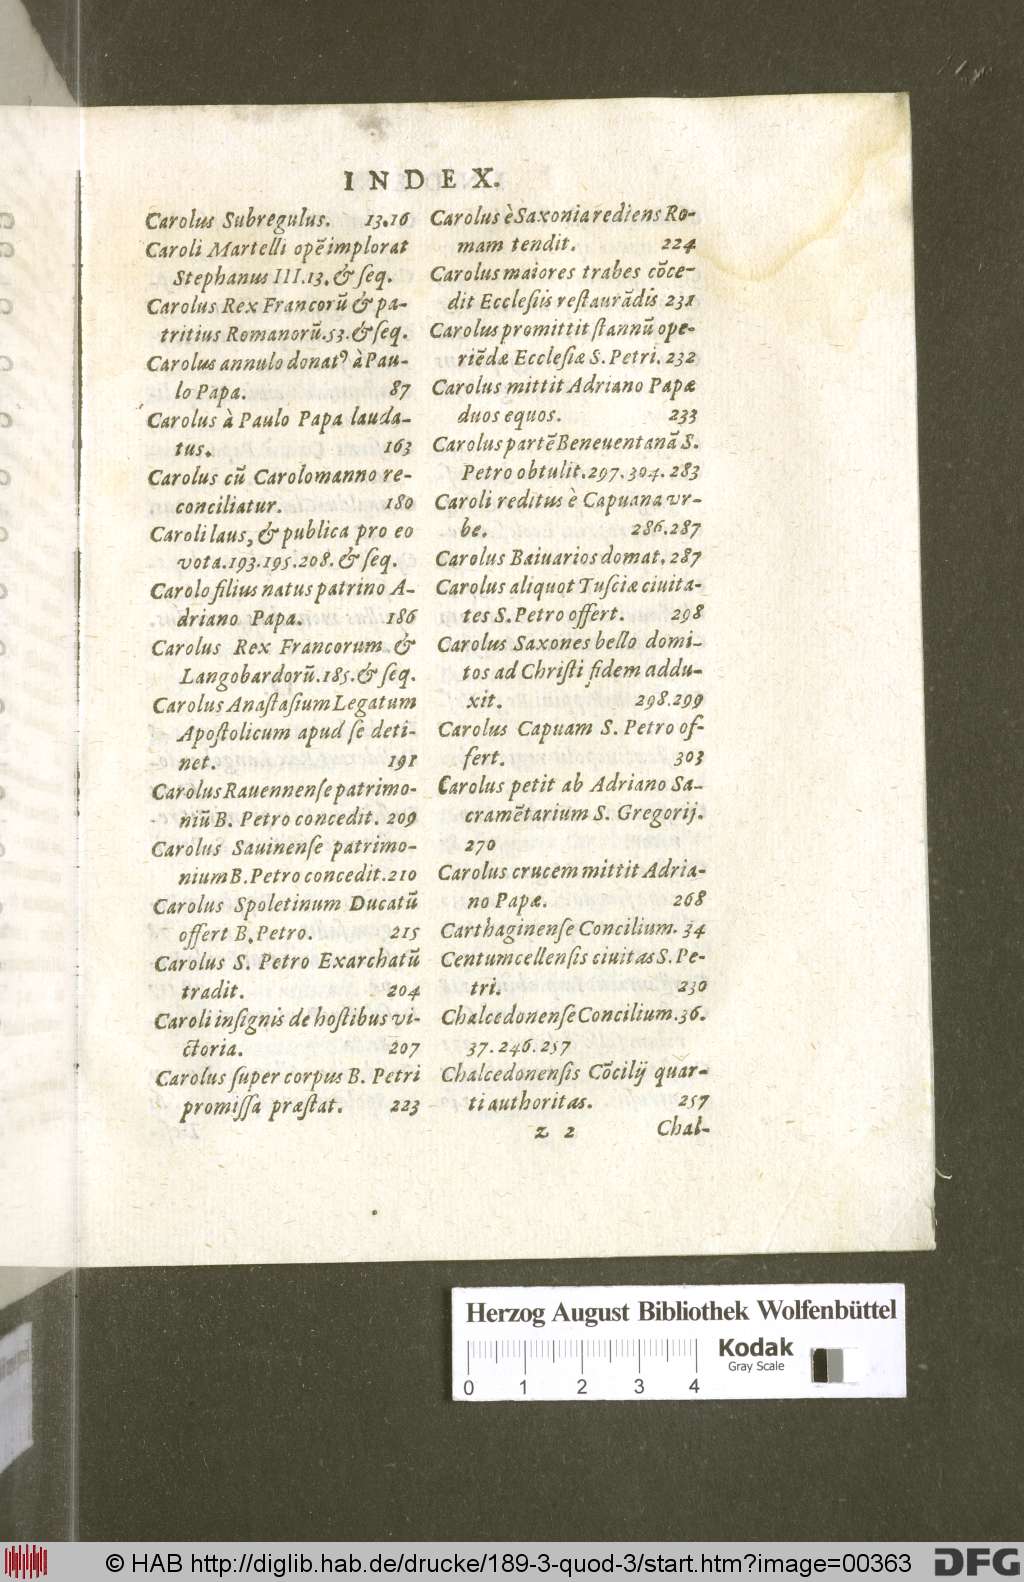 INDEX.
Carolus Subregulus. 13.16
Caroli Martelli opẽ implorat
Stephanus III.13. & ſeq.
Carolus Rex Francorũ & pa-
tritius Romanorũ.53.& ſeq.
Carolus annulo donatꝰ à Pau-
lo Papa. 87
Carolus à Paulo Papa lauda-
tus. 163
Carolus cũ Carolomanno re-
conciliatur. 180
Caroli laus, & publica pro eo
vota.193.195.208. & ſeq.
Carolo filius natus patrino A-
driano Papa. 186
Carolus Rex Francorum &
Langobardorũ.185.& ſeq.
Carolus Anaſtaſium Legatum
Apoſtolicum apud ſe deti-
net. 191
Carolus Rauennenſe patrimo-
niũ B. Petro concedit. 209
Carolus Sauinenſe patrimo-
nium B. Petro concedit.210
Carolus Spoletinum Ducatũ
offert B. Petro. 215
Carolus S. Petro Exarchatũ
tradit. 204
Caroli inſignis de hoſtibus vi-
ctoria. 207
Carolus ſuper corpus B. Petri
promiſſa præſtat. 223
Carolus è Saxonia rediens Ro-
mam tendit. 224
Carolus maiores trabes cõce-
dit Eccleſiis reſtaurãdis 231
Carolus promittit ſtannũ ope-
riẽdæ Eccleſiæ S. Petri. 232
Carolus mittit Adriano Papæ
duos equos. 233
Carolus partẽ Beneuentanã S.
Petro obtulit.297.304.283
Caroli reditus è Capuana vr-
be. 286.287
Carolus Baiuarios domat. 287
Carolus aliquot Tuſciæ ciuita-
tes S. Petro offert. 298
Carolus Saxones bello domi-
tos ad Chriſti fidem addu-
xit. 298.299
Carolus Capuam S. Petro of-
fert. 303
Carolus petit ab Adriano Sa-
cramẽtarium S. Gregorij.
270
Carolus crucem mittit Adria-
no Papæ. 268
Carthaginenſe Concilium. 34
Centumcellenſis ciuitas S. Pe-
tri. 230
Chalcedonenſe Concilium.36.
37.246.257
Chalcedonenſis Cõcilij quar-
ti authoritas. 257
z 2 Chal-
Herzog August Bibliothek Wolfenbüttel
Kodak
Gray Scale
0 1 2 3 4
© HAB http://diglib.hab.de/drucke/189-3-quod-3/start.htm?image=00363 DFG